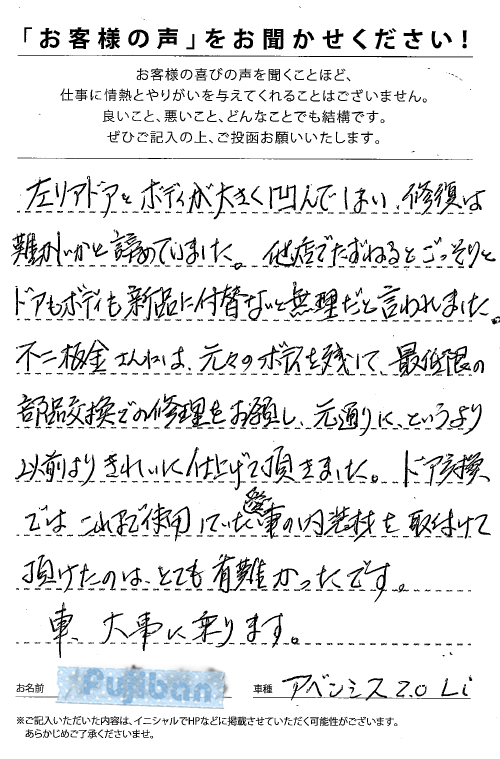 「お客様の声」をお聞かせください！
お客様の喜びの声を聞くことほど、
仕事に情熱とやりがいを与えてくれることはございません。
良いこと、悪いこと、どんなことでも結構です。
ぜひご記入の上、ご投函お願いいたします。
左リアドアとボディが大きく凹んでしまい、修復は
難かしいかと諦めていました。他店でたずねるとごっそりと
ドアもボディも新品に付替ないと無理だと言われました。
不二板金さんには、元々のボディを残して、最低限の
部品交換での修理をお願し、元通りに、というより
以前よりきれいに仕上げて頂きました。ドア交換
ではこれまで使用していた愛車の内装材を取付けて
頂けたのは、とても有難かったです。
車、大事に乗ります。
お名前 Fujiban 車種 アベンシス 2.0 Li
※ご記入いただいた内容は、イニシャルでHPなどに掲載させていただく可能性がございます。
あらかじめご了承くださいませ。